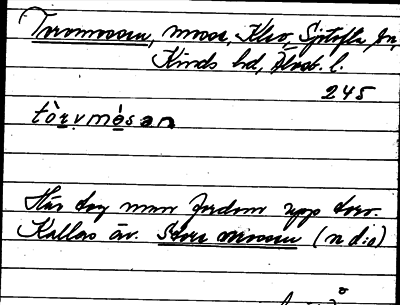 Torvmossen, mosse, Klev, Sjötofta sn,
Kinds hd, Älvsb. l.
245
tòrvmósan
Här tog man fordom upp torv.
Kallas äv. Stora mossen (n d:o)